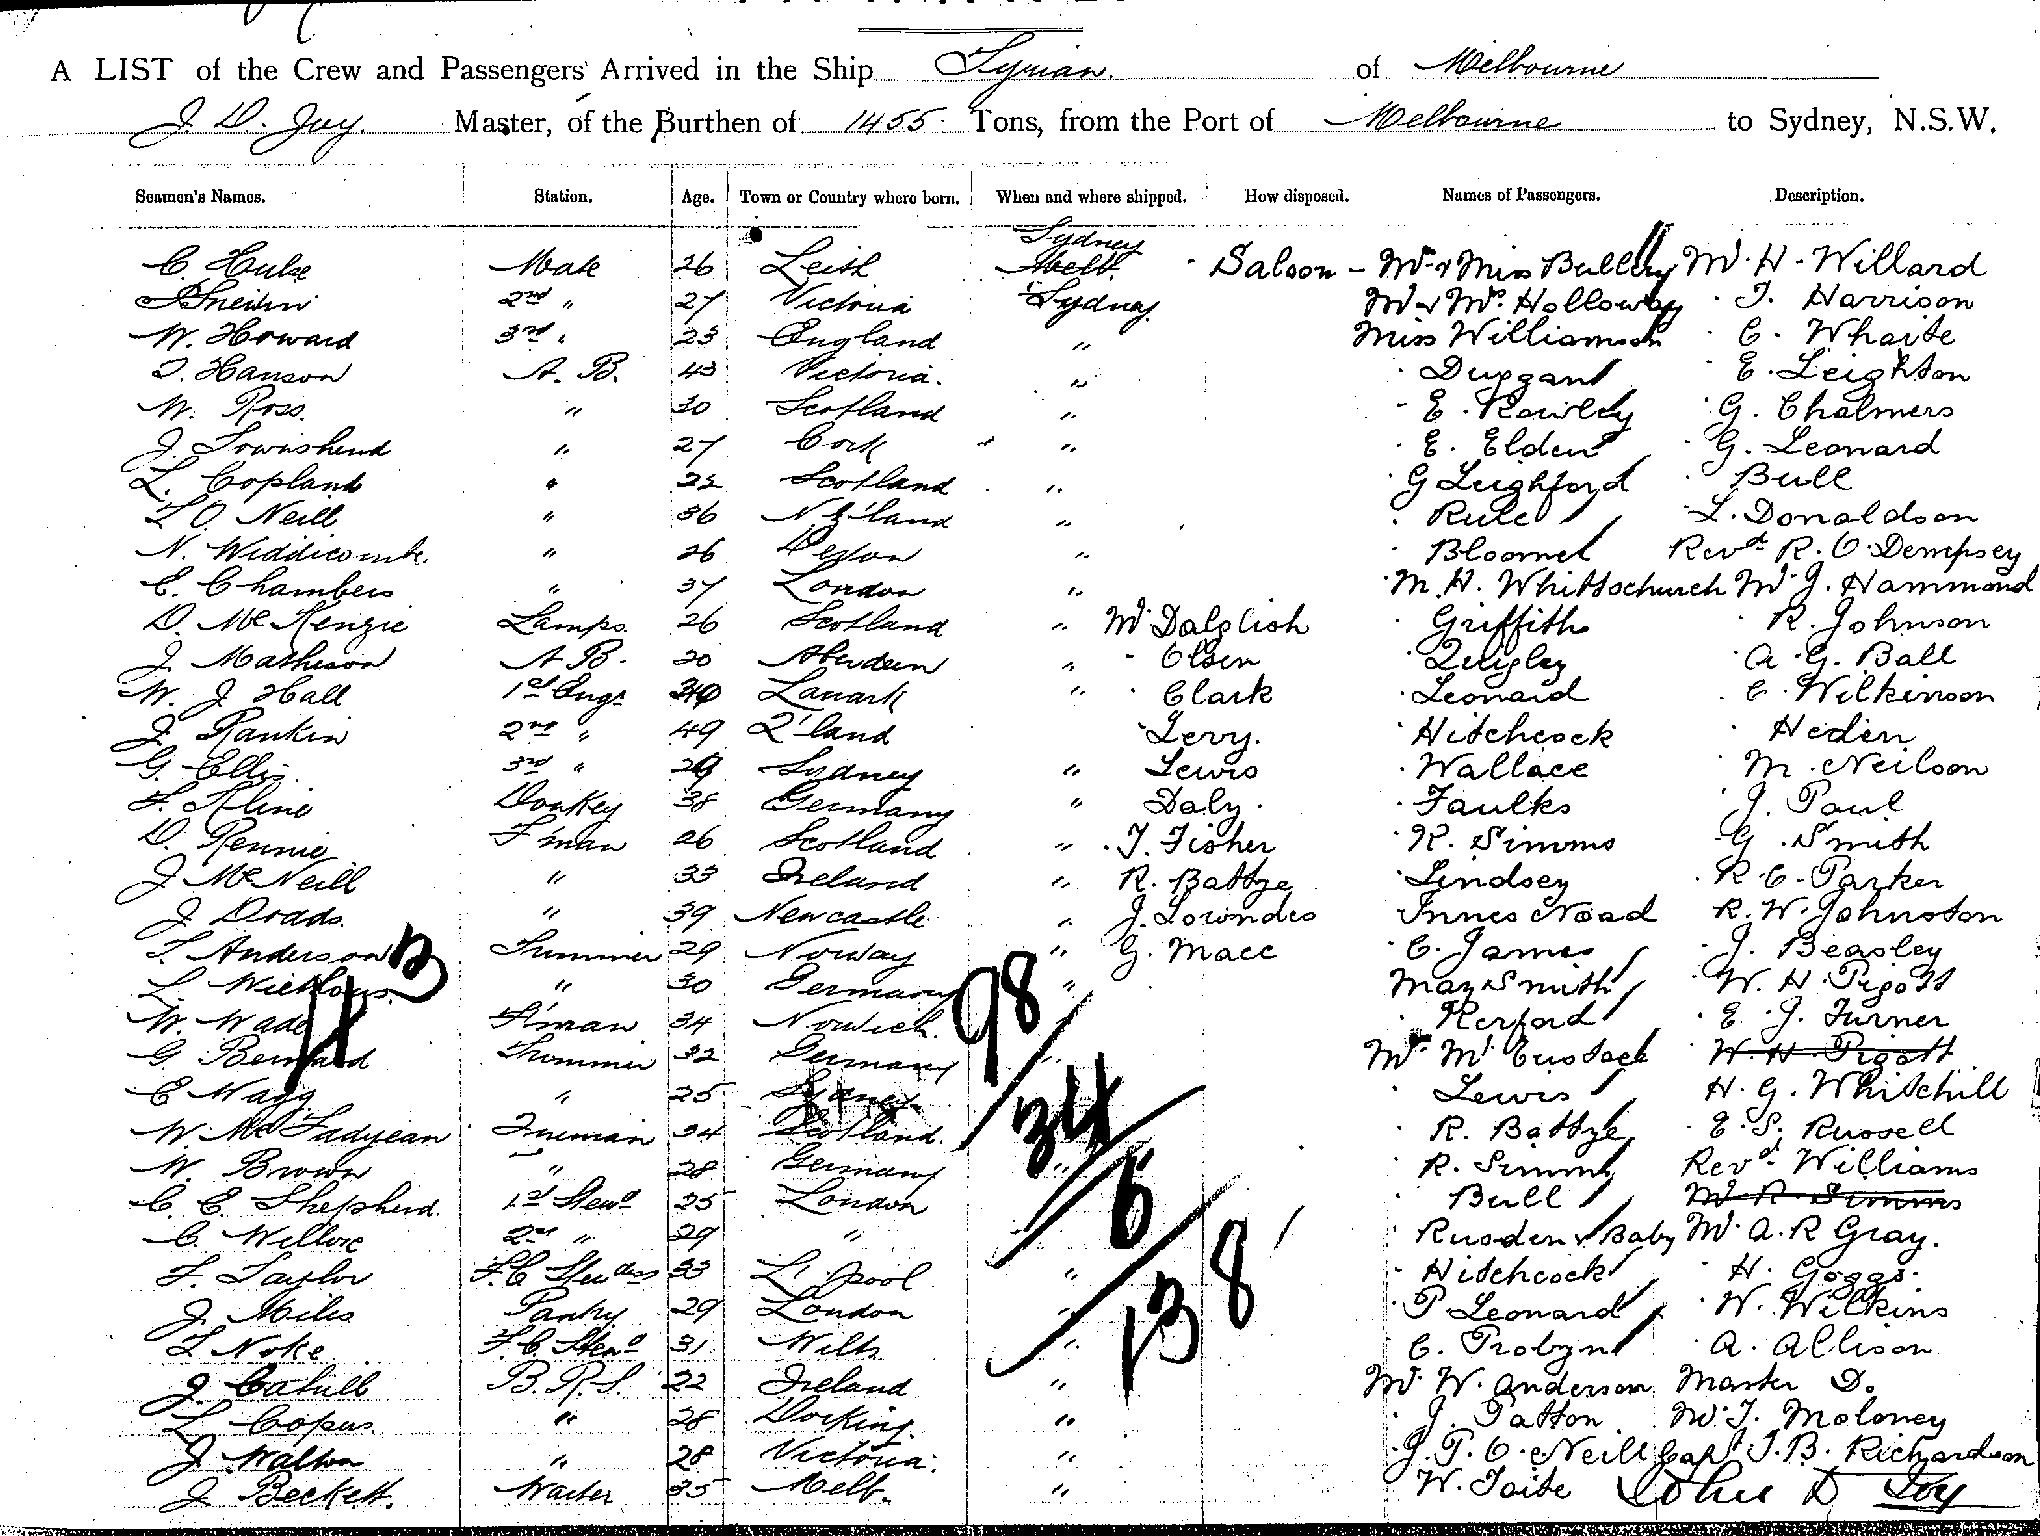 A LIST of the Crew and Passengers Arrived in the Ship Tyrian. of Melbourne
J. D. Joy. Master, of the Burthen of 1455 Tons, from the Port of Melbourne to Sydney, N.S.W.
Seamen's Names. Station. Age. Town or Country where born. When and where shipped. How disposed. Names of Passengers. Description.
Sydney
C. Hulse Mate 26 Leith Melb. Saloon - Mr & Miss Mr. H. Willard
2nd " 27 Victoria Sydney Mr & Mrs Holloway T. Harrison
W. Howard 3rd " 23 England " Miss Williamson C. Whaite
T. Hanson A. B. 43 Victoria. " Duggan E. Leighton
W. Ross. " 30 Scotland " E. Rowley G. Chalmers
J. Townshend " 27 Cork " E. Elden G. Leonard
L. Copland " 22 Scotland " G Leighford Bull
T O. Neill " 36 N Z'land " Rule L. Donaldson
N. Widdicombe. " 26 " Revd. R. C. Dempsey
C. Chambers " 37 London " M. H. Whittschurch Mr J. Hammond
D. McKenzie Lamps. 26 Scotland " Mr Dalglish Griffiths R. Johnson
J. Matheson A. B. 30 Aberdeen " Olsen Quigley A. G. Ball
W. J. Hall 1st Engr 40 Lanark " Clark Leonard C. Wilkinson
J. Rankin 2nd " 49 Q'land Levy. Hitchcock Hedin
G. Ellis. 3rd " 29 Sydney " Lewis Wallace M. Neilson
F. Kline Donkey 38 Germany " Daly. Faulks J. Paul
D. Rennie F'man 26 Scotland " T. Fisher R. Simms G. Smith
J. McNeill " 33 Ireland " R. Battye Lindsey R. C. Parker
J. Dodds. " 39 Newcastle " J. Lowndes Innes Noad R. W. Johnston
T. Anderson Trimmer 29 Norway " G. Mace C. James J. Beasley
L. " 30 Germany " May Smith W. H. Pigott
W. Wade F'man 34 Norwich Kerford E. J. Turner
G. Bernard Trimmer 32 Germany " Mr W. H. Pigott
C. Wagg " 25 Sydney Lewis H. G. Whitehill
W. McFadyean Fireman 34 Scotland. R. Battye E. S. Russell
W. Brown " 28 Germany " R. Simms Revd. Williams
C. E. Shepherd. 1st Stewd 25 London Bull Mr R Simms
C. 2nd " 29 " Rusden & Baby Mr. A. R Gray.
F. Taylor F.C. Stewdess 33 L'pool " Hitchcock H. Goggs.
J. Miles Pantry 29 London " P Leonard W. Wilkins
T Noke. F.C. Stewd 31 Wilts " C. Probyn A. Allison
J. Cahill B. R. S. 22 Ireland " Mr W. Anderson Master D.
L. Copus. " 28 Dorking. " J. Patton Mr. T. Moloney
J Walton " 28 Victoria. " J. P. O. Neill Capt T. B. Richardson
J Beckett. Waiter 35 Melb. " W. Taite John D Joy
98
34
6
138